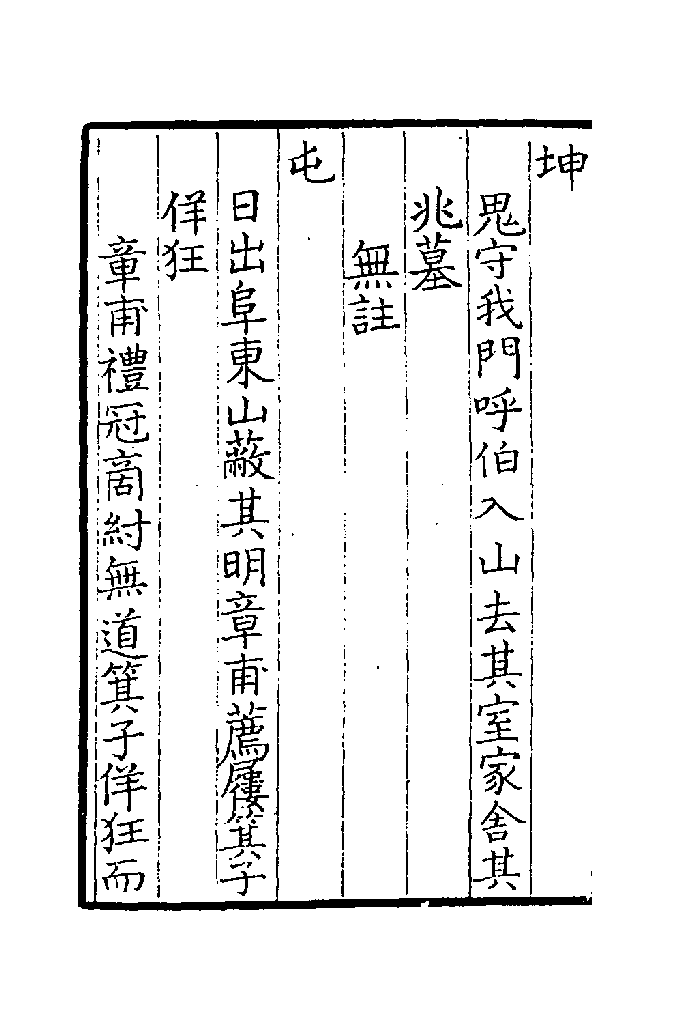 坤
鬼守我門呼伯入山去其室家舍其
兆墓
無註
屯
日出阜東山蔽其明章甫薦屨箕子
佯狂
章甫禮冠商紂無道箕子佯狂而